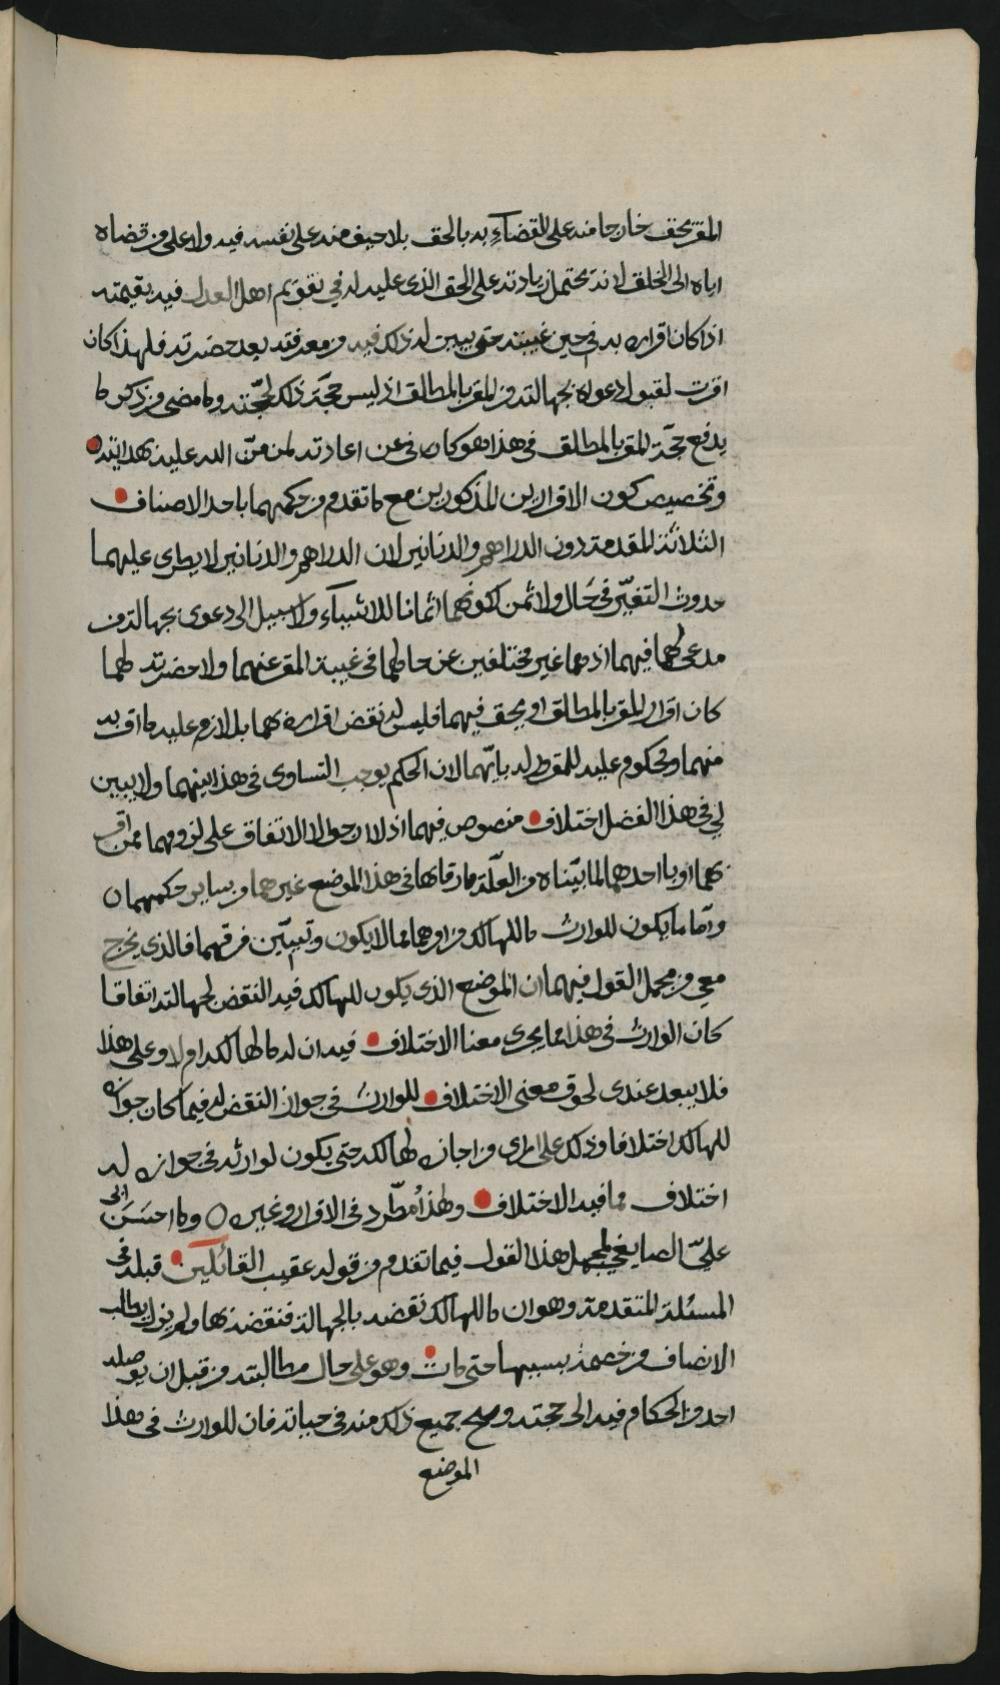 المقر بحق خارجا منه على القضاء به بالحق بلا حيف منه على نفسه فيه ولا على من قضاه
اياه الى الخلق لانه يحتمل زيادته على الحق الذى عليه له في تقويم اهل العدل فيه بقيمته
اذا كان اقراره به في حين غيبته حتى يبين له ذلك فيه ومعرفته بعد حضرته فلهذا كان
اقرب لقبول دعواه بجهالته من المقر بالمطالق اذ ليس حجة ذلك لحجته وما مضى من ذكر ما
يدفع حجة المقر بالمطالق في هذا فهو كاف عن اعادته لمن منّ الله عليه بهدايته
وتخصيص كون الاقرارين المذكورين مع ما تقدم من حكمهما باحد الاصناف
الثلاثة المقدمة دون الدراهم والدنانير لان الدراهم والدنانير لا يطرى عليهما
حدوث التغيّر في حال ولا ثمن لكونهما اثمانا للاشياء ولا سبيل الى دعوى بجهالة من
مدعى لهما فيهما اذ هما غير مختلفين عن حالهما في غيبة المقر عنهما ولا حضرته لهما
كان اقرار المقر بالمطالق او بحق فيهما فليس له نقض اقراره بهما بل لازم عليه ما اقر به
منهما ومحكوم عليه للمقر له بايهما لان الحكم يوجب التساوى في هذا بينهما ولا يبين
لي في هذا الفصل اختلاف منصوص فيهما اذ لا ارجو الا الاتفاق على لزومهما ممن اقر
بهما او باحدهما لما بيّناه من العلّة فارقاها في هذا الموضع غيرهما من ساير حكمهما
وامّا ما يكون للوارث ما للهالك من امرهما مما لا يكون وتبيّن فرقهما فالذى يخرج
معي من مجمل القول فيهما ان الموضع الذى يكون للهالك فيه النقض لجهالته اتفاقا
كان الوارث في هذا مما يجرى معنا الاختلاف فيه ان له ما لهالكه ام لا وعلى هذا
فلا يبعد عندى لحوق معنى الاختلاف للوارث في جواز النقض له فيما كان جوازه
للهالك اختلافا وذلك على راى من اجازه لهالكه حتى يكون لوارثه في جوازه له
اختلاف مما فيه الاختلاف وهذا مطّرد في الاقرار وغيره وما احسن ابى
عليّ الصايغي لمجمل هذا القول فيما تقدم من قوله عقيب القائلين قبله في
المسئلة المتقدمة وهو ان ما للهالك نقضه بالجهالة فنقضه بها ولم يزل يطالب
الانصاف من خصمه بسببها حتى مات وهو على حال مطالبته من قبل ان يوصله
احد من الحكام فيه الى حجته وصح جميع ذلك منه في حياته فان للوارث في هذا
الموضع